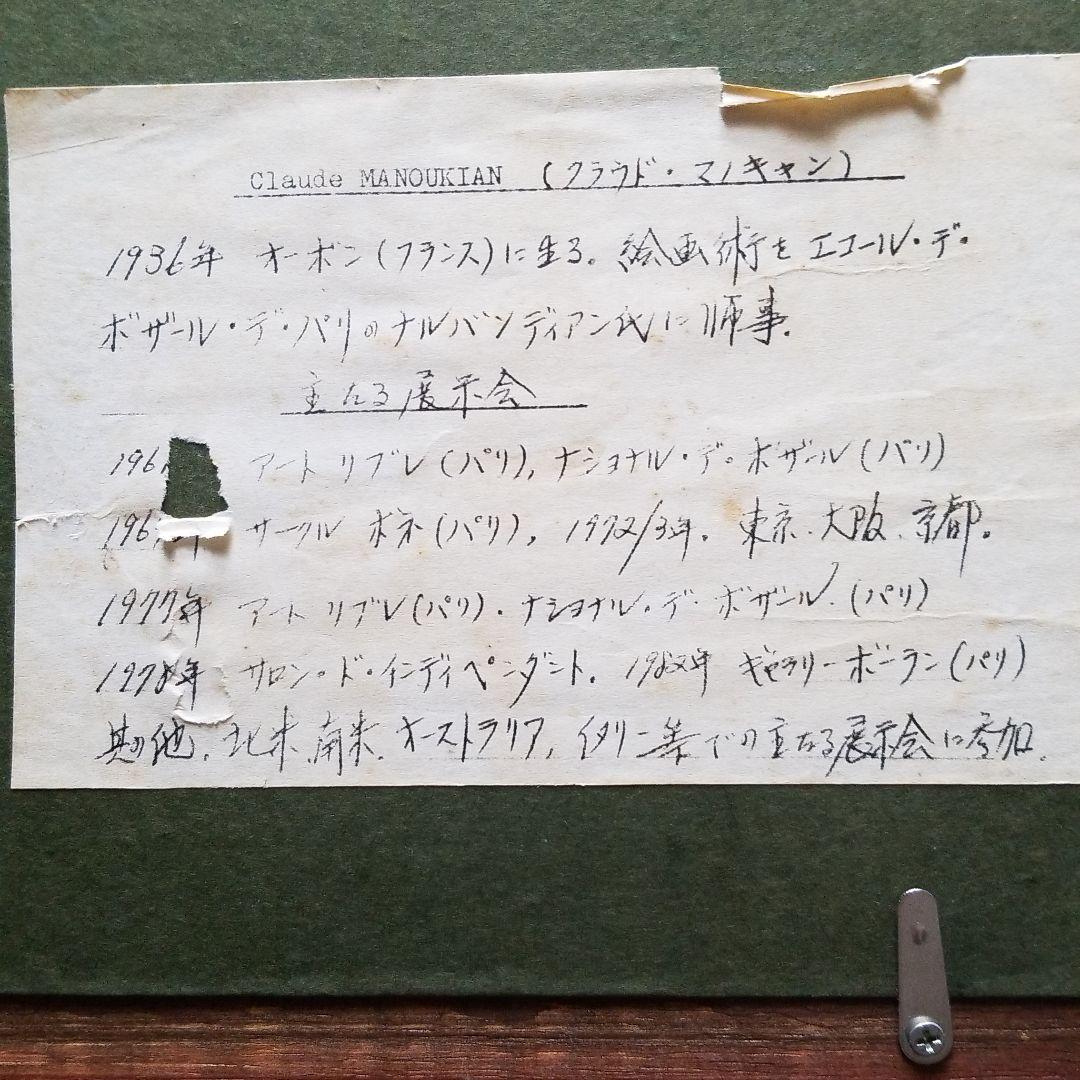 Claude MANOUKIAN (クラウド・マノキャン)
1936年 オーボン(フランス)に生る。絵画術をエコール・デ・
ボザール・デ・パリのナルバンディアン氏に師事.
主たる展示会
196 アート リブレ(パリ), ナショナル・デ・ボザール(パリ)
196 サークル ボネ(パリ), 1972/3年. 東京、大阪、京都。
1977年 アート リブレ(パリ)・ナショナル・デ・ボザール.(パリ)
1978年 サロン・ド・インディペンダント. 1982年 ギャラリーボーラン(パリ)
其の他、北米、南米、オーストラリア, イタリー等での主たる展示会に参加.